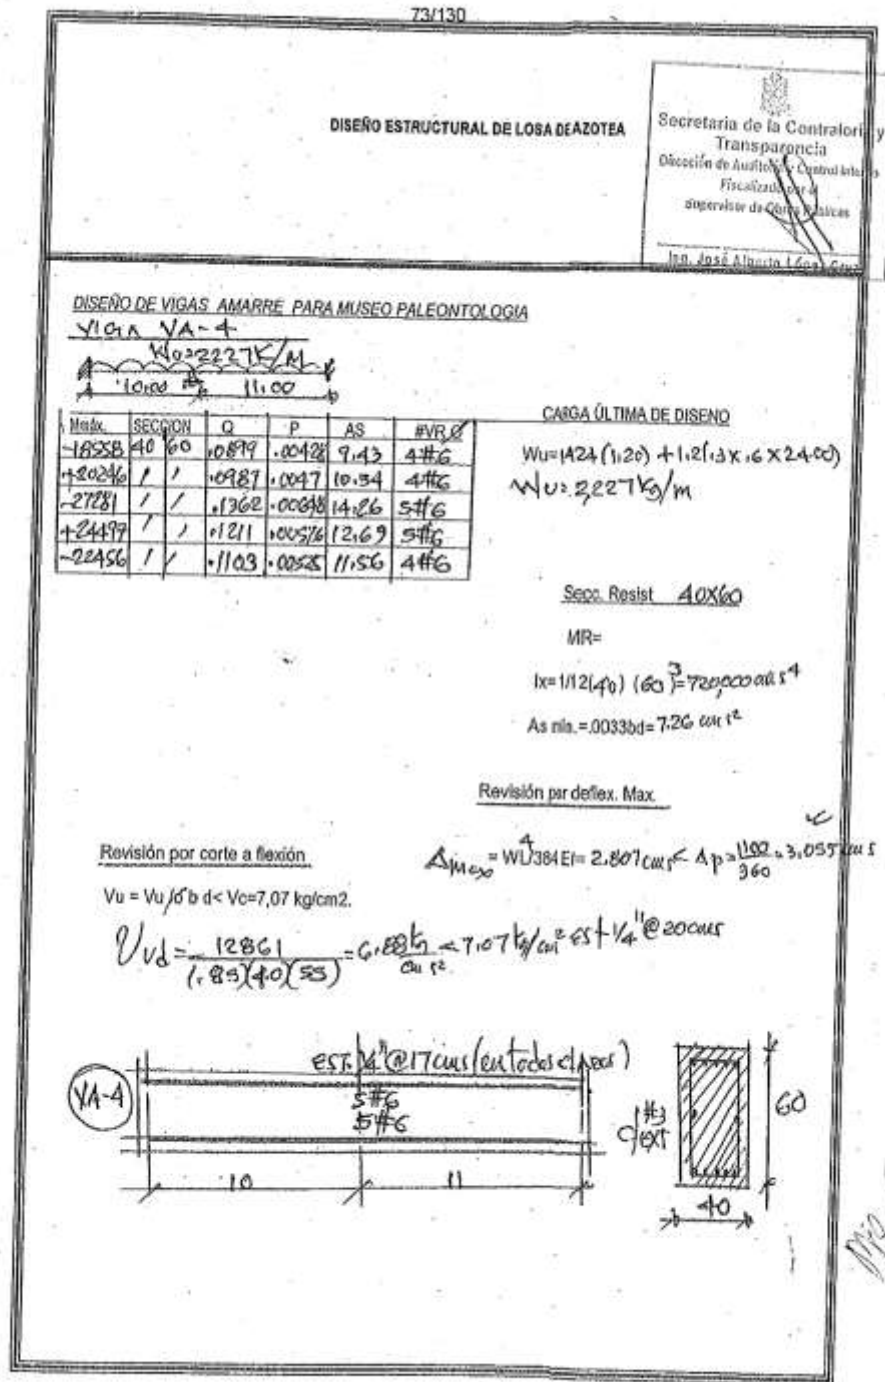 73/130
DISEÑO ESTRUCTURAL DE LOSA DEAZOTEA
Secretaria de la Contraloria y
Transparencia
Dirección de Auditoria y Control Interno
Fiscalizado por el
supervisor de Obras Públicas
Ing. José Alberto López Cruz
DISEÑO DE VIGAS AMARRE PARA MUSEO PALEONTOLOGIA
VIGA VA-4
Wu=2227K/M
10.00 11.00
Mmáx. SECCION Q P AS #VR Ø
-18558 40 60 .0899 .00428 9.43 4#6
+20246 / / .0987 .0047 10.34 4#6
-27281 / / .1362 .00648 14.26 5#6
+24499 / / .1211 .00576 12.69 5#6
-22456 / / .1103 .00525 11.56 4#6
CARGA ÚLTIMA DE DISENO
Wu=1424(1.20) + 1.2(.3x.6x2400)
Wu=2,227 Kg/m
Secc. Resist 40X60
MR=
Ix=1/12(40) (60)3=720,000 cms4
As mín.=.0033bd= 7.26 cms2
Revisión por deflex. Max.
Δmax = WL4/384EI= 2.807 cms < Δp = 1100/360 = 3.055 cms
Revisión por corte a flexión
Vu = Vu/Ø b d< Vc=7,07 kg/cm2.
Vud = 12861/(.85)(40)(55) = 6.88 kg/cms2 < 7.07 kg/cm2 est 1/4" @ 20cms
EST. 1/4" @ 17 cms (en todos claros)
VA-4
5#6
5#6
#3
60
10 11
40